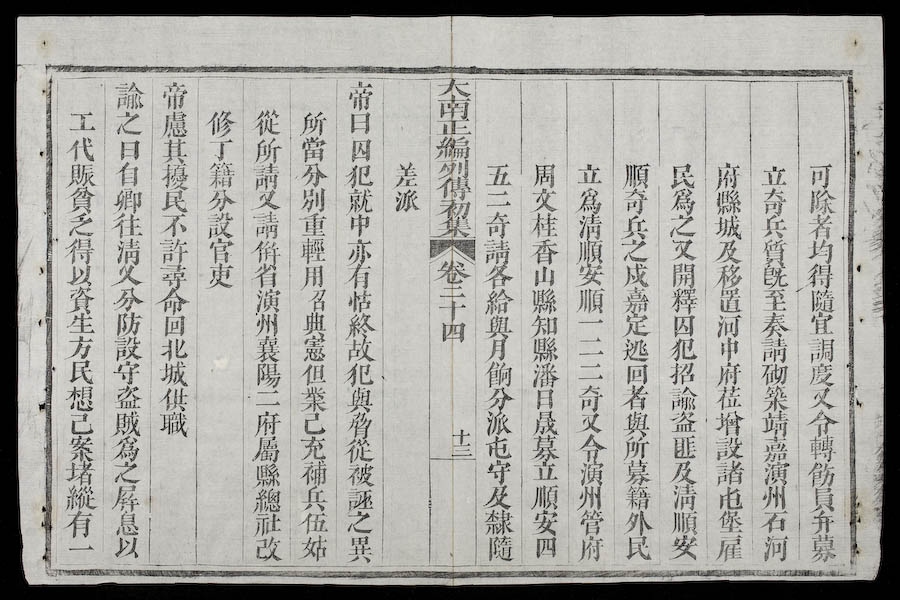 可除者均得隨宜調度又令轉飭員弁募
立奇兵質旣至奏請砌築靖嘉演州石河
府縣城及移置河中府莅增設諸屯堡雇
民爲之又開釋囚犯招諭盜匪及淸順安
順奇兵之戍嘉定逃回者與所募籍外民
立爲淸順安順一二三奇又令演州管府
周文桂香山縣知縣潘日晟募立順安四
五二奇請各給與月餉分派屯守及隸隨
差派
大南正編列傳初集 卷二十四 十三
帝曰囚犯就中亦有怙終故犯與脅從被誣之異
所當分別重輕用召典憲但業已充補兵伍姑
從所請又請併省演州襄陽二府屬縣總社改
修丁籍分設官吏
帝慮其擾民不許尋命回北城供職
諭之曰自卿往淸乂分防設守盜賊爲之屛息以
工代賑貧乏得以資生方民想已案堵縱有一